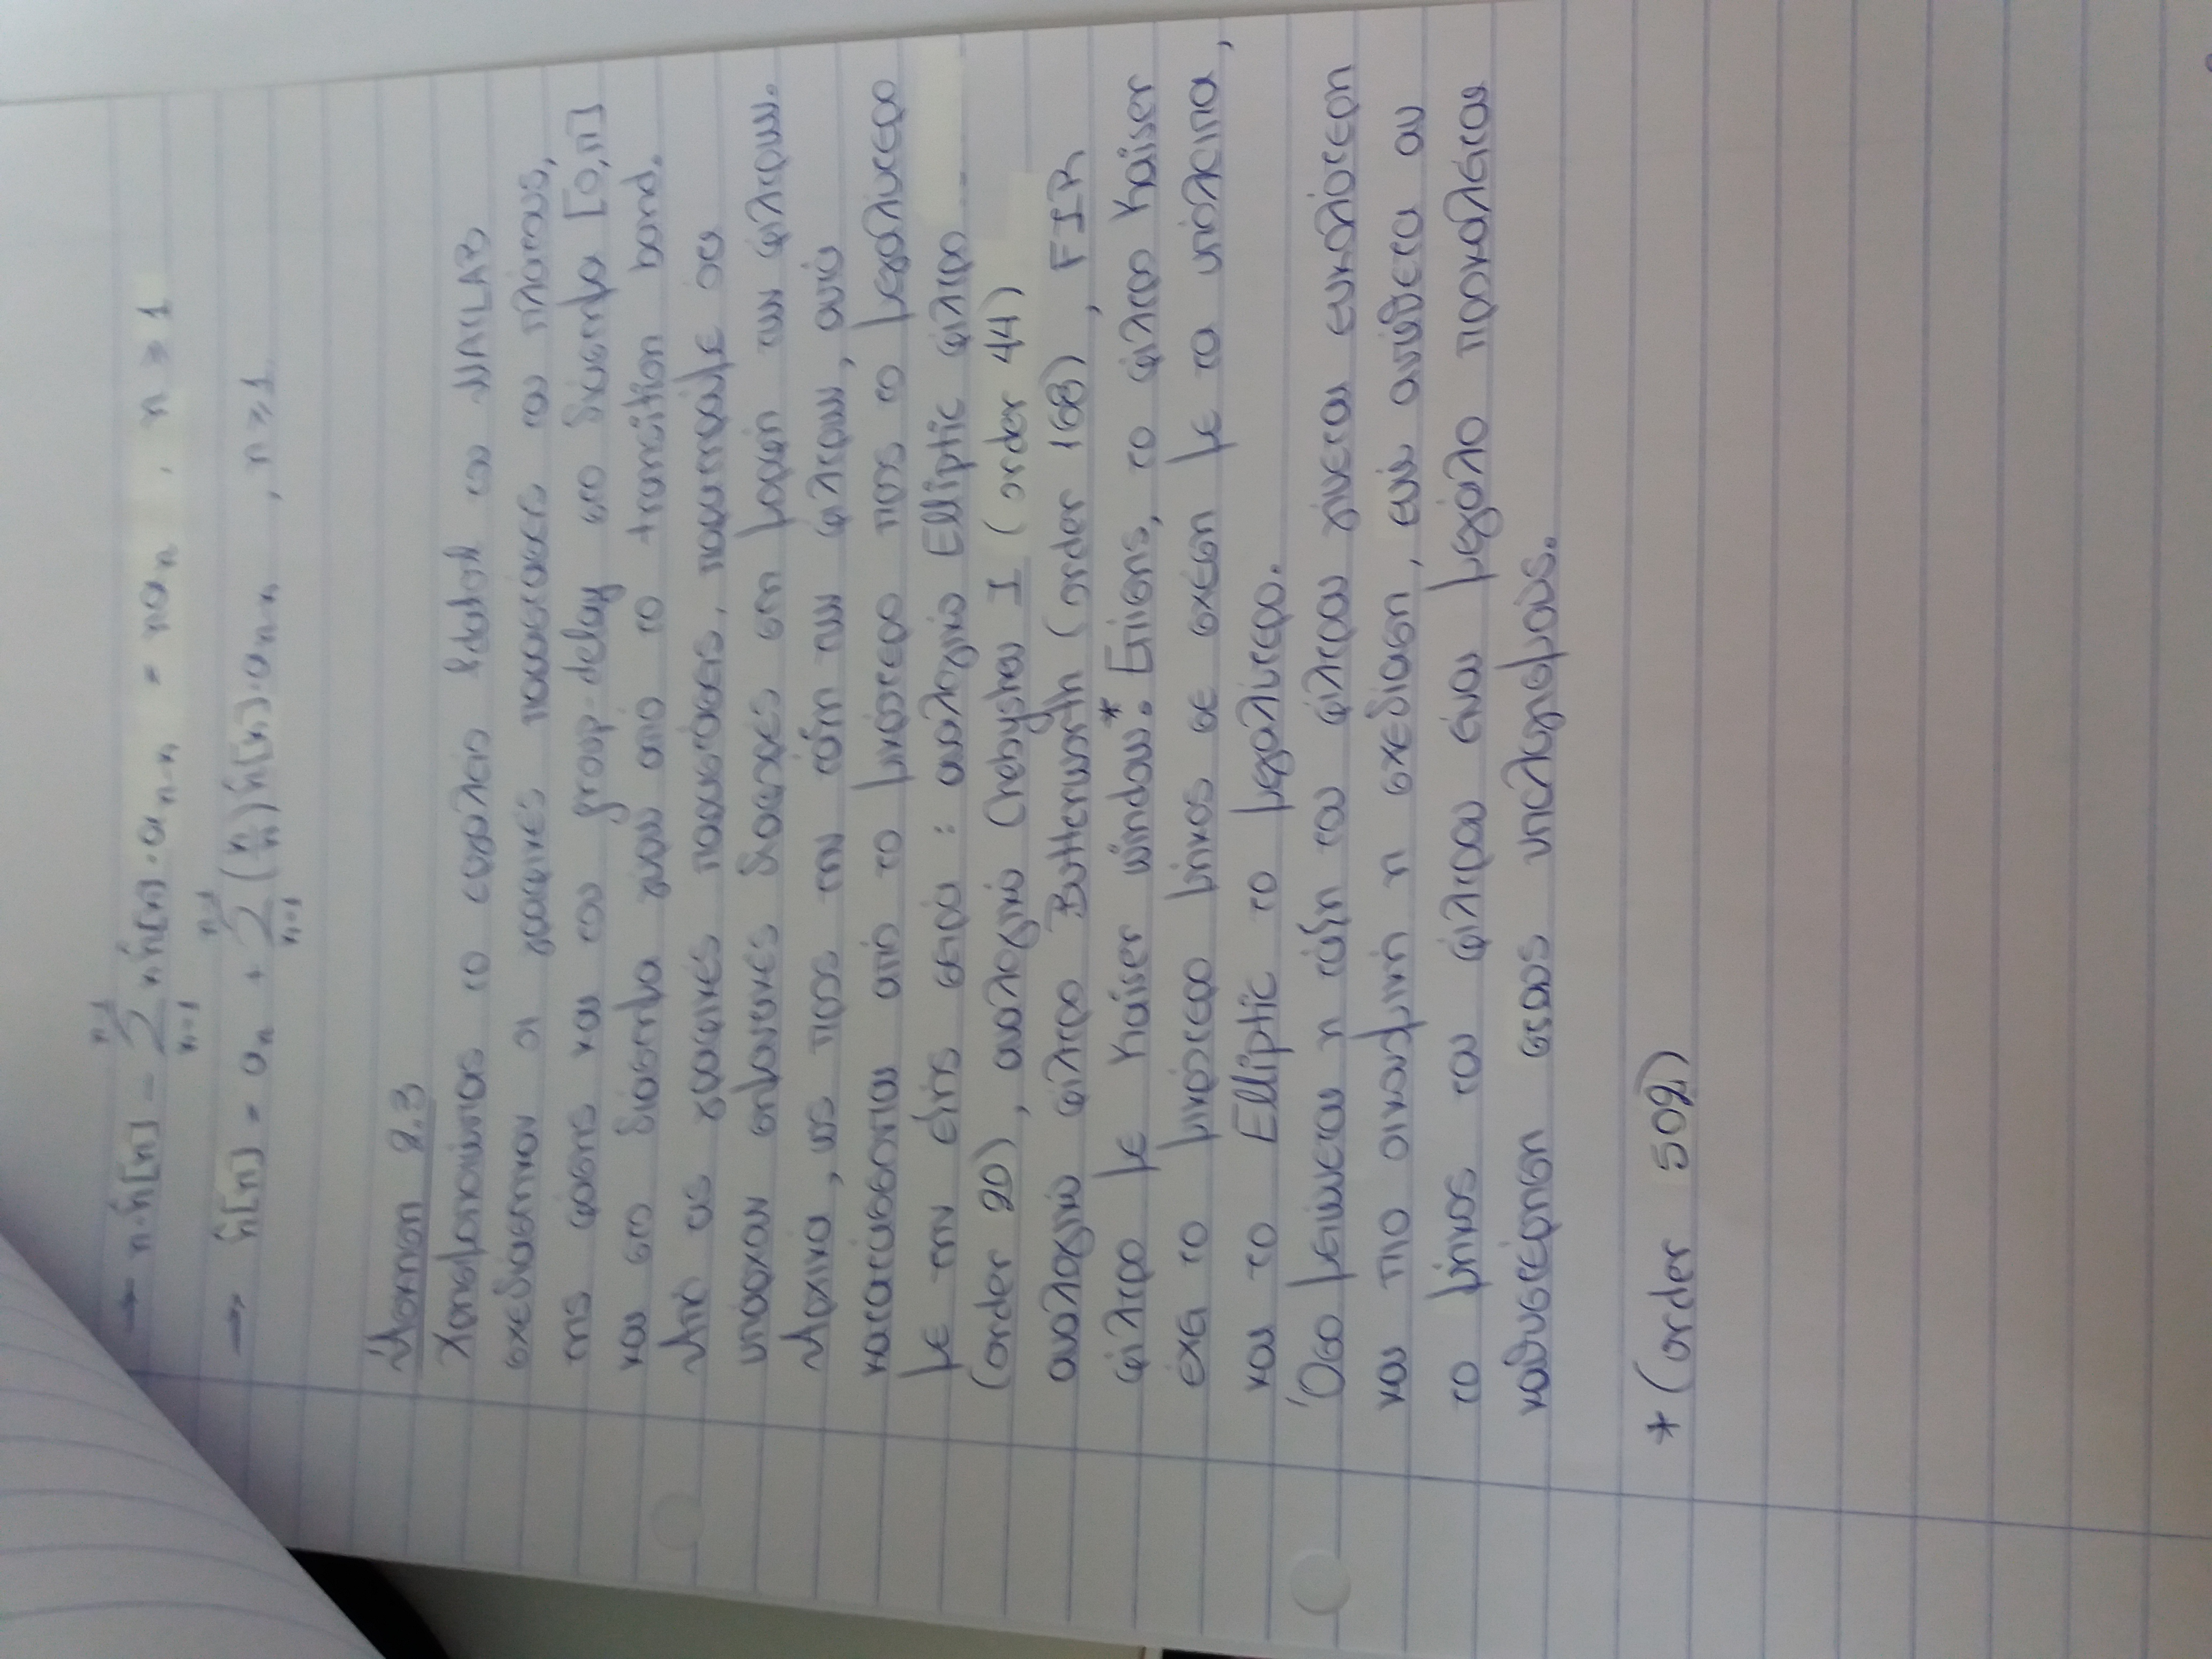 → n·ĥ[n] - Σ_{κ=1}^{n-1} κĥ[κ]·α_{n-κ} = nα_n , n ≥ 1
→ ĥ[n] = α_n + Σ_{κ=1}^{n-1} (κ/n) ĥ[κ]·α_{n-κ} , n ≥ 1
Άσκηση 2.3
Χρησιμοποιώντας το εργαλείο fdatool του MATLAB
σχεδιάστηκαν οι γραφικές παραστάσεις του πλάτους,
της φάσης και του group-delay στο διάστημα [0,π]
και στο διάστημα γύρω από το transition band.
Από τις γραφικές παραστάσεις, παρατηρούμε ότι
υπάρχουν σημαντικές διαφορές στη μορφή των φίλτρων.
Αρχικά, ως προς την τάξη των φίλτρων, αυτά
κατατάσσονται από το μικρότερο προς το μεγαλύτερο
με την εξής σειρά : αναλογικό Elliptic φίλτρο
(order 20), αναλογικό Chebyshev I (order 44)
αναλογικό φίλτρο Butterworth (order 168), FIR
φίλτρο με Kaiser window.* Επίσης, το φίλτρο Kaiser
έχει το μικρότερο μήκος σε σχέση με τα υπόλοιπα,
και το Elliptic το μεγαλύτερο.
Όσο μειώνεται η τάξη του φίλτρου γίνεται ευκολότερη
και πιο οικονομική η σχεδίαση, ενώ αντίθετα αν
το μήκος του φίλτρου είναι μεγάλο προκαλείται
καθυστέρηση στους υπολογισμούς.
* (order 502)